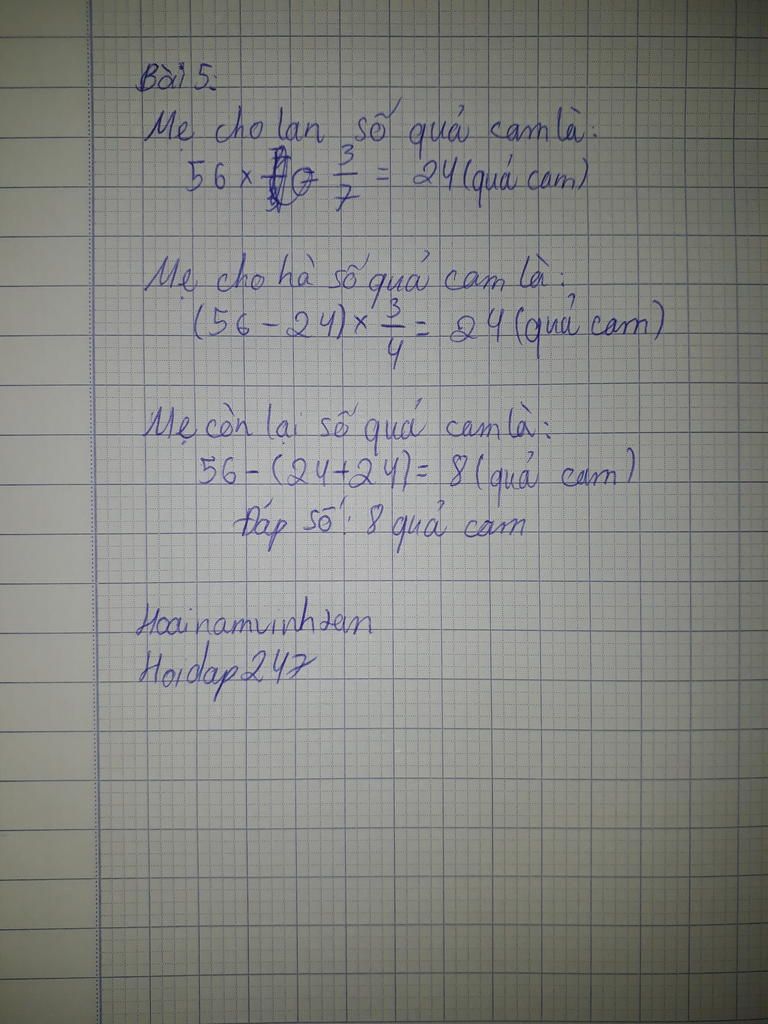 Bài 5:
Mẹ cho lan số quả cam là:
56 × 3/7 = 24 (quả cam)
Mẹ cho hà số quả cam là:
(56 - 24) × 3/4 = 24 (quả cam)
Mẹ còn lại số quả cam là:
56 - (24 + 24) = 8 (quả cam)
Đáp số: 8 quả cam
Hoainamvinh
Hoidap247